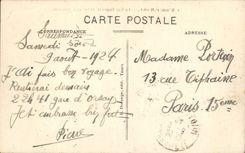 CARTE POSTALE
CORRESPONDANCE
ADRESSE
Samedi soir
9 août 1924
J'ai fait bon voyage.
Rentrerai demain
22h41 gare d'Orsay
Je t'embrasse bien fort
Pierre
Madame Portier
13 rue Tiphaine
Paris 15ème